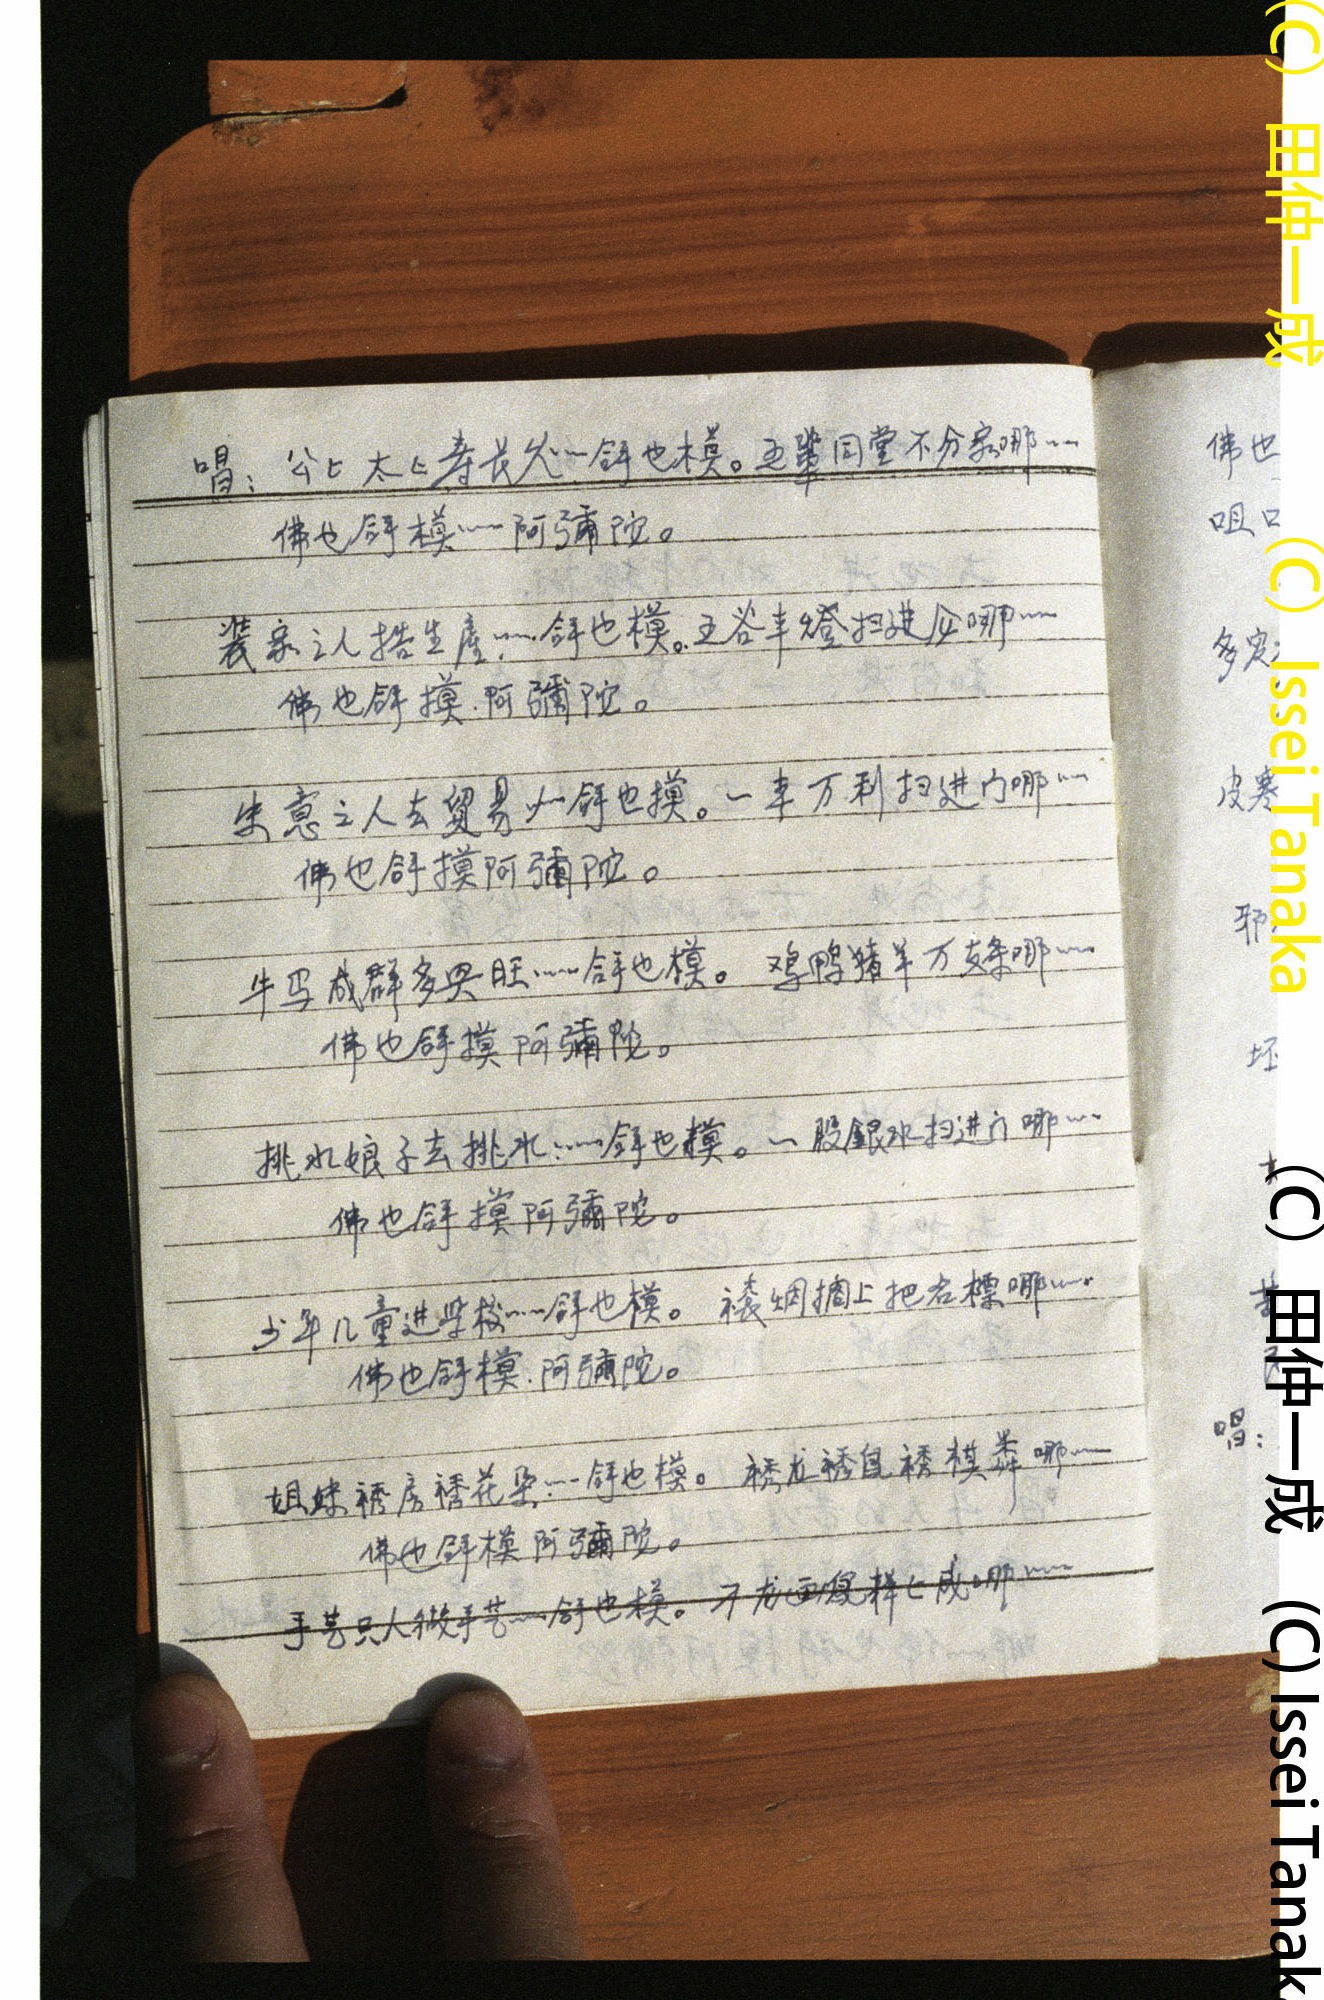 唱：公〻太〻寿长久……舒也模。五輩同堂不分家哪……
佛也舒模……阿彌陀。
装家之人搞生産……舒也模。五谷丰燈扫进仓哪……
佛也舒摸阿彌陀。
失意之人去貿易……舒也摸。一本万利扫进门哪……
佛也舒摸阿彌陀。
牛马成群多興旺……舒也模。鸡鸭猪羊万支条哪……
佛也舒摸阿彌陀。
挑水娘子去挑水……舒也模。一股銀水扫进门哪……
佛也舒摸阿彌陀。
少年儿童进学校……舒也模。上把名標哪……
佛也舒模阿彌陀。
姐妹褣房绣花朵……舒也模。绣龙绣鳳绣棋
佛也舒模阿彌陀。
手艺只人做手艺……舒也模。龙画鳳样〻成哪……
佛也
咀
多
皮寒
邪
坯
唱：
(C) 田仲一成 (C) Issei Tanaka
(C) 田仲一成 (C) Issei Tanak